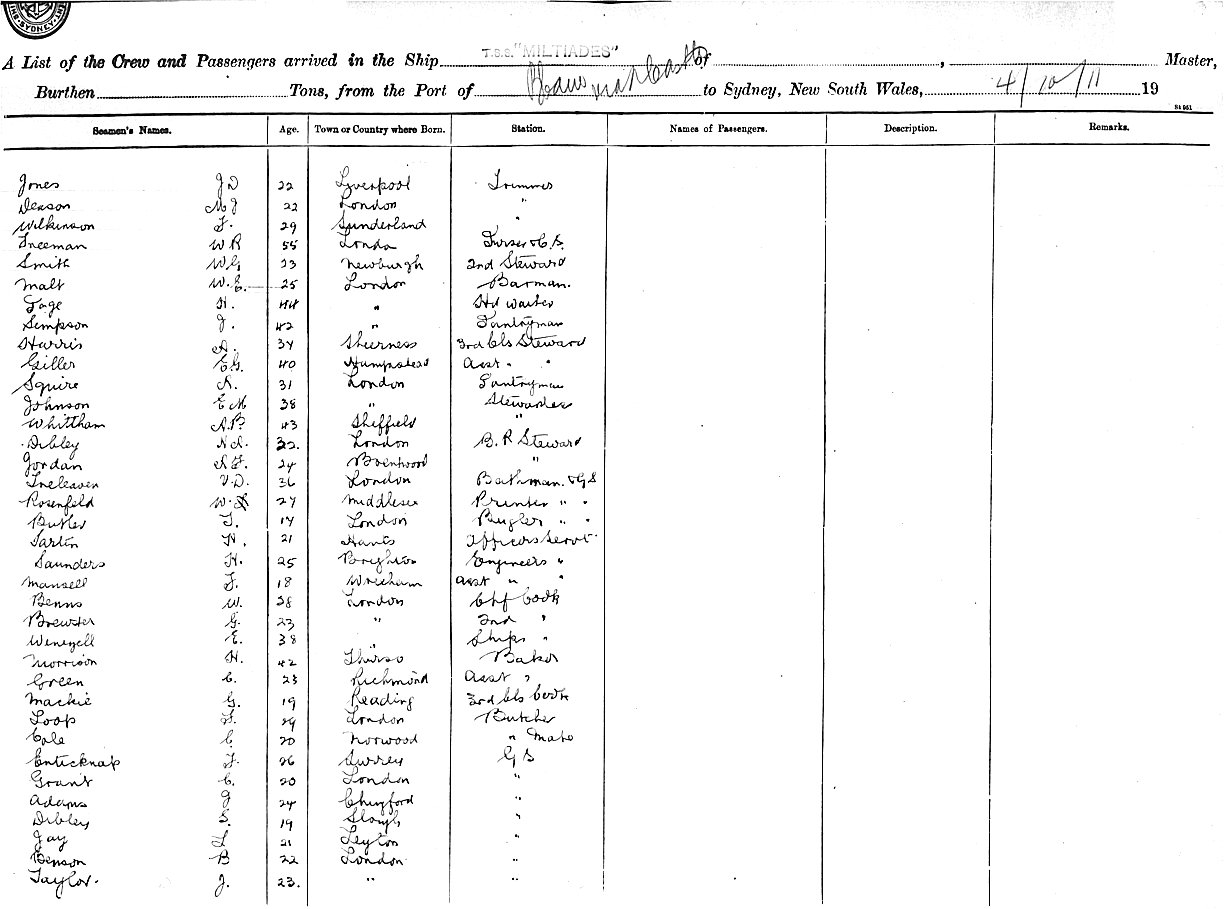 SYDNEY
T.S.S. "MILTIADES"
A List of the Crew and Passengers arrived in the Ship of , Master,
Burthen Tons, from the Port of to Sydney, New South Wales, 4/10/11 19
Seamen's Names. Age. Town or Country where Born. Station. Names of Passengers. Description. Remarks.
Jones J D 22 Liverpool Trimmer
Deason M J 22 London "
Wilkinson F. 29 Sunderland "
Freeman W R 55 London Purser & C.S.
Smith W G 23 Newburgh 2nd Steward
Malt W.E. 25 London Barman.
Page H. 44 " Hd waiter
Simpson J. 42 " Pantryman
Harris A. 34 Sheerness 3rd Cls Steward
Giller E G. 40 Hampstead Asst " "
Squire A. 31 London Pantryman
Johnson E M 38 " Stewardess
Whittham A.B. 43 Sheffield "
Dibley 32. London B.R Steward
Jordan 24 Brentwood "
Treleaven V.D. 36 London Bathman. & G S
Rosenfeld W. 27 Middlesex Printer " "
Butler T. 17 London Bugler " "
Sartin H. 21 Hants Officers Servt.
Saunders H. 25 Brighton Engineers "
Mansell F. 18 Wrexham Asst " "
Benns W. 38 London Chf Cook
Brewster G. 23 " 2nd "
Wenezell E. 38 " Ships "
Morrison H. 42 Thurso Baker
Green C. 23 Richmond Asst "
Mackie G. 19 Reading 3rd Cls Cook
Loop 29 London Butcher
Cole C 20 Norwood " Mate
Enticknap F. 26 Surrey G S
Grant C. 20 London "
Adams J 24 Chingford "
Dibley S. 19 Slough "
Jay L 21 Leyton "
Benson B 22 London "
Taylor. J. 23. " "